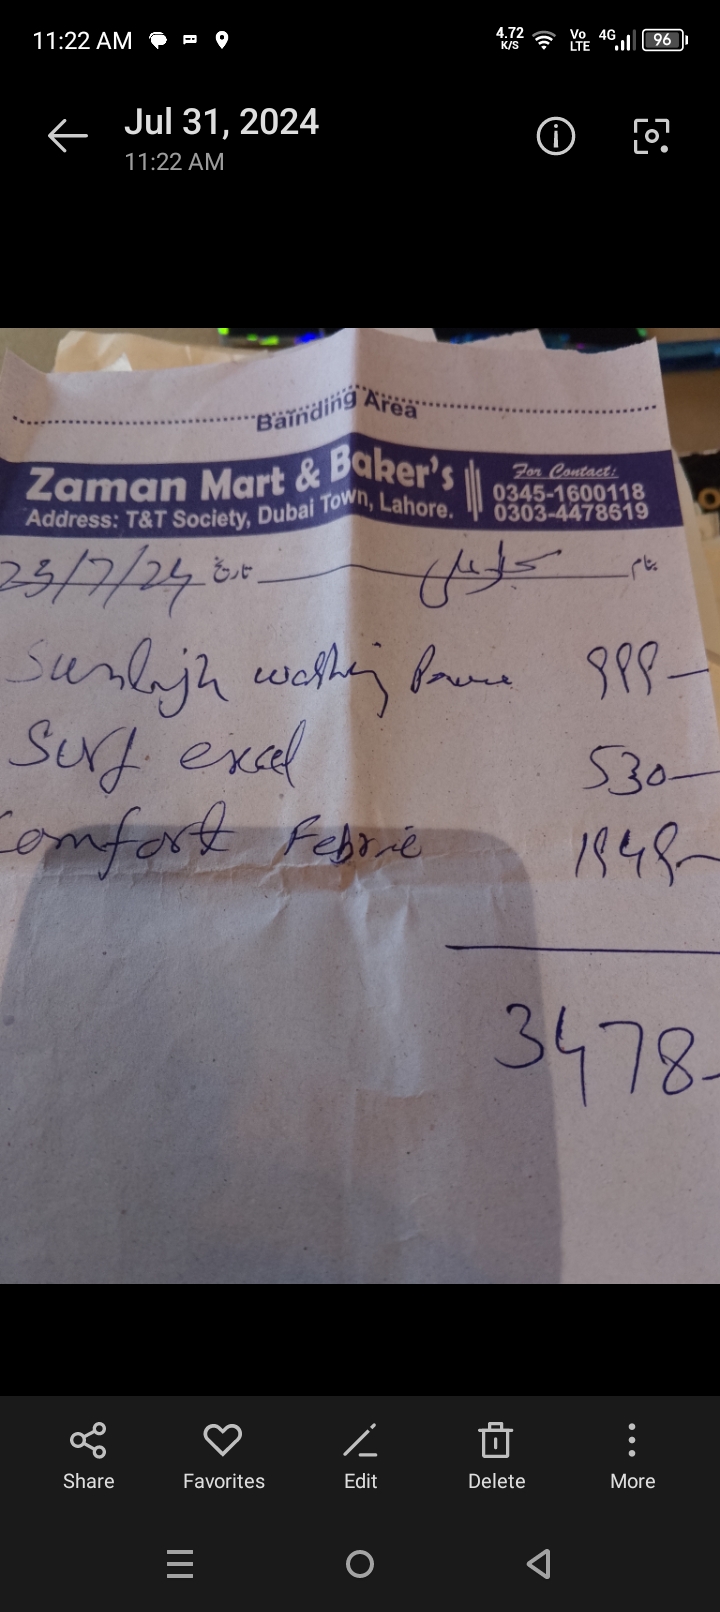 11:22 AM 4.72 K/S Vo LTE 4G 96
Jul 31, 2024
11:22 AM
Bainding Area
Zaman Mart & Baker's
Address: T&T Society, Dubai Town, Lahore.
For Contact:
0345-1600118
0303-4478619
بنام تاریخ 23/7/24
Sunligh washing 999
Surf excel 530
Comfort Febric 1949
3478
Share Favorites Edit Delete More